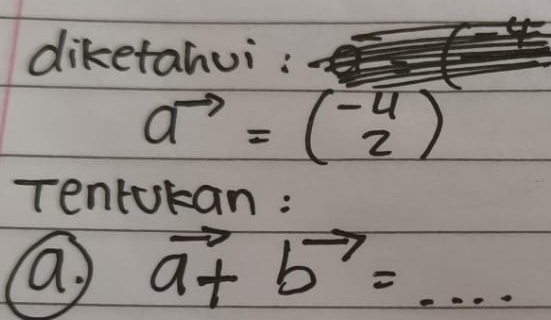 diketahui :
a→ = (-4
2)
Tentukan :
a. a→ + b→ = ....